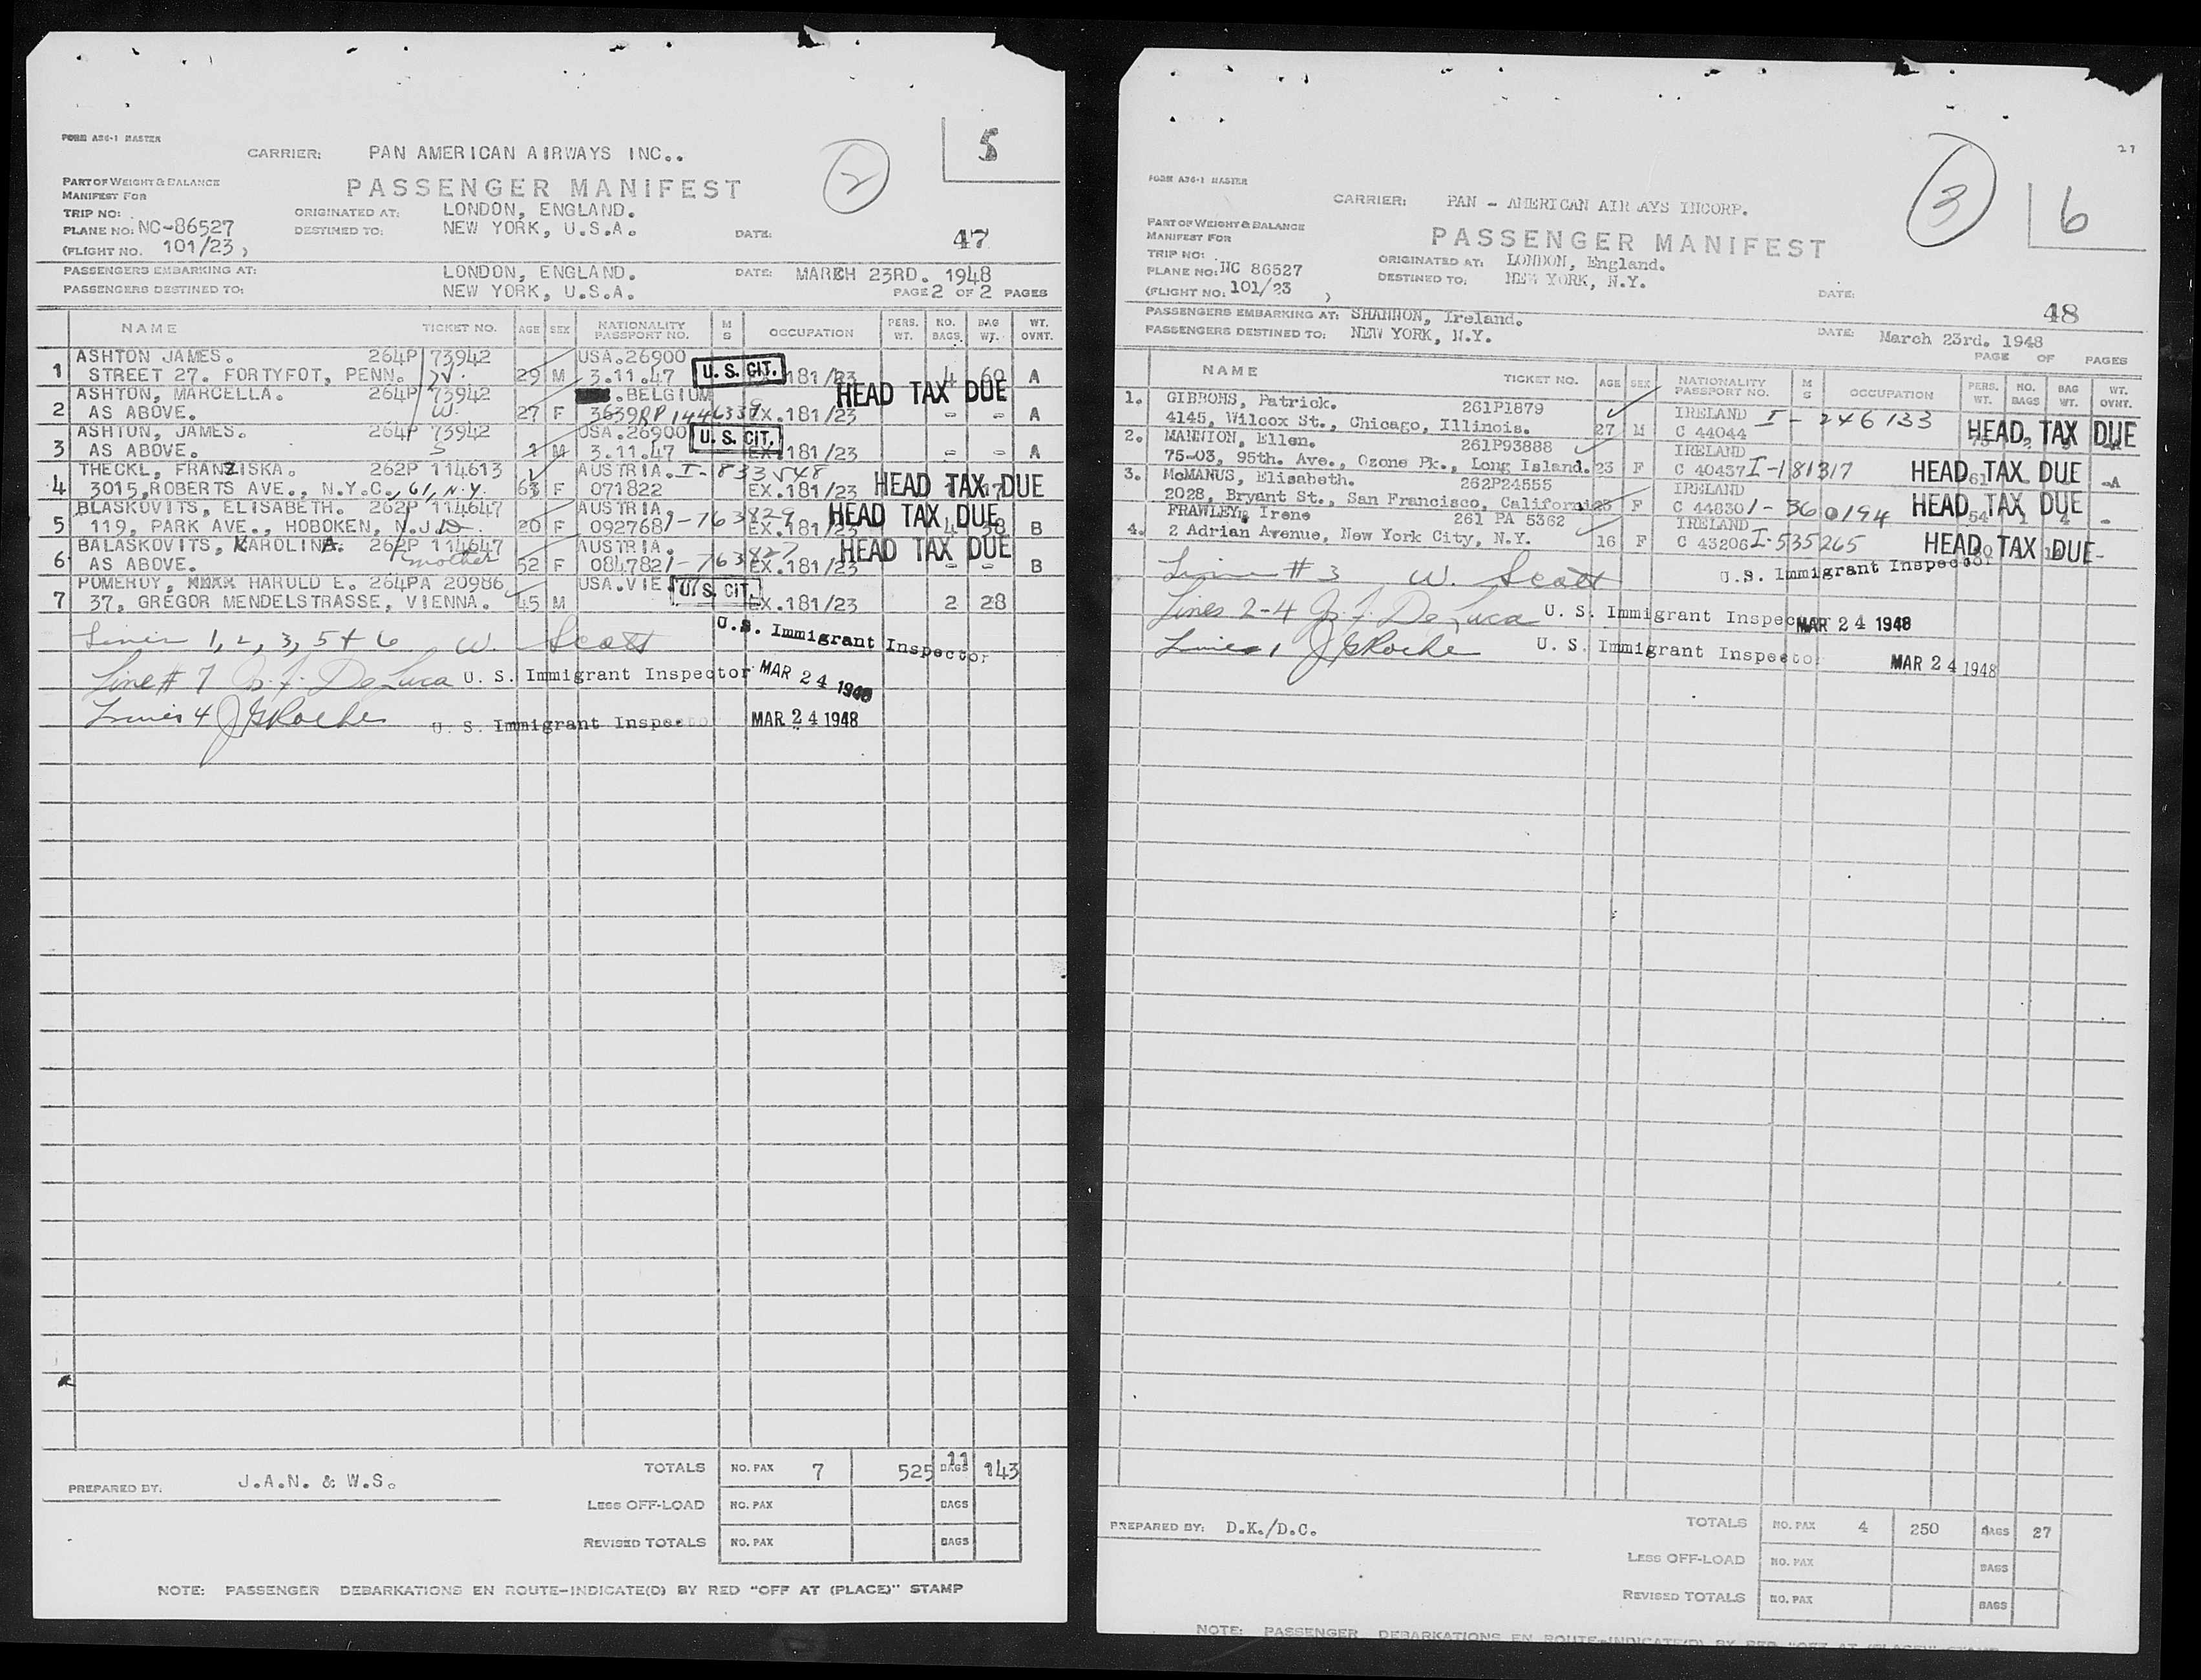 FORM A26-1 MASTER
5
2
CARRIER: PAN AMERICAN AIRWAYS INC..
PART OF WEIGHT & BALANCE
MANIFEST FOR
PASSENGER MANIFEST
TRIP NO:
ORIGINATED AT: LONDON, ENGLAND.
PLANE NO: NC-86527
DESTINED TO: NEW YORK, U.S.A.
DATE: 47
(FLIGHT NO. 101/23 )
PASSENGERS EMBARKING AT: LONDON, ENGLAND.
DATE: MARCH 23RD. 1948
PASSENGERS DESTINED TO: NEW YORK, U.S.A.
PAGE 2 OF 2 PAGES
NAME TICKET NO. AGE SEX NATIONALITY PASSPORT NO. M S OCCUPATION PERS. WT. NO. BAGS. BAG WT. WT. OVNT.
ASHTON JAMES. 264P 73942 USA.26900
1 STREET 27. FORTYFOT, PENN. 29 M 3.11.47 U. S. CIT. 181/23 4 60 A
ASHTON, MARCELLA. 264P 73942 .BELGIUM HEAD TAX DUE
2 AS ABOVE. W. 27 F 3639 RP 1446337 EX.181/23 - - A
ASHTON, JAMES. 264P 73942 USA.26900 U. S. CIT.
3 AS ABOVE. S 1 M 3.11.47 EX.181/23 - - A
THECKL, FRANZISKA. 262P 114613 AUSTRIA. I-833548
4 3015,ROBERTS AVE., N.Y.C., 61, N.Y. 63 F 071822 EX.181/23 HEAD TAX DUE
BLASKOVITS, ELISABETH. 262P 114647 AUSTRIA. HEAD TAX DUE
5 119, PARK AVE., HOBOKEN, N.J. D 20 F 092768 I-763829 EX.181/23 4 38 B
BALASKOVITS, KAROLINA. 262P 114647 AUSTRIA. HEAD TAX DUE
6 AS ABOVE. mother 52 F 084782 I-763827 EX.181/23 - - B
POMEROY, HAROLD E. 264PA 20986 USA.VIE. U. S. CIT.
7 37, GREGOR MENDELSTRASSE, VIENNA. 45 M EX.181/23 2 28
Lines 1, 2, 3, 5 + 6 W. Scott U.S. Immigrant Inspector
Line # 7 De Luca U. S. Immigrant Inspector MAR 24 1948
Lines 4 J G Roche U. S. Immigrant Inspector MAR 24 1948
TOTALS NO. PAX 7 525 11 BAGS 143
PREPARED BY: J.A.N. & W.S.
LESS OFF-LOAD NO. PAX BAGS
REVISED TOTALS NO. PAX BAGS
NOTE: PASSENGER DEBARKATIONS EN ROUTE-INDICATE(D) BY RED "OFF AT (PLACE)" STAMP
27
FORM A26-1 MASTER
3
6
CARRIER: PAN - AMERICAN AIR AYS INCORP.
PART OF WEIGHT & BALANCE
MANIFEST FOR
PASSENGER MANIFEST
TRIP NO:
ORIGINATED AT: LONDON, England.
PLANE NO: NC 86527
DESTINED TO: NEW YORK, N.Y.
(FLIGHT NO: 101/23 )
DATE: 48
PASSENGERS EMBARKING AT: SHANNON, Ireland.
PASSENGERS DESTINED TO: NEW YORK, N.Y.
DATE: March 23rd. 1948
PAGE OF PAGES
NAME TICKET NO. AGE SEX NATIONALITY PASSPORT NO. M S OCCUPATION PERS. WT. NO. BAGS BAG WT. WT. OVNT.
1. GIBBONS, Patrick. 261P1879 IRELAND I-246133
4145, Wilcox St., Chicago, Illinois. 27 M C 44044 HEAD TAX DUE
2. MANNION, Ellen. 261P93888 IRELAND
75-03, 95th. Ave., Ozone Pk., Long Island. 23 F C 40437 I-181317 HEAD TAX DUE A
3. McMANUS, Elisabeth. 262P24555 IRELAND
2028, Bryant St., San Francisco, California 25 F C 44830 I-360194 HEAD TAX DUE -
FRAWLEY, Irene 261 PA 5362 IRELAND
4. 2 Adrian Avenue, New York City, N.Y. 16 F C 43206 I-535265 HEAD TAX DUE -
Line # 3 W. Scott U.S. Immigrant Inspector
Lines 2-4 De Luca U. S. Immigrant Inspector MAR 24 1948
Lines 1 J G Roche U. S. Immigrant Inspector MAR 24 1948
TOTALS NO. PAX 4 250 BAGS 27
PREPARED BY: D.K./D.C.
LESS OFF-LOAD NO. PAX BAGS
REVISED TOTALS NO. PAX BAGS
NOTE: PASSENGER DEBARKATIONS EN ROUTE-INDICATE(D) BY RED "OFF AT (PLACE)" STAMP